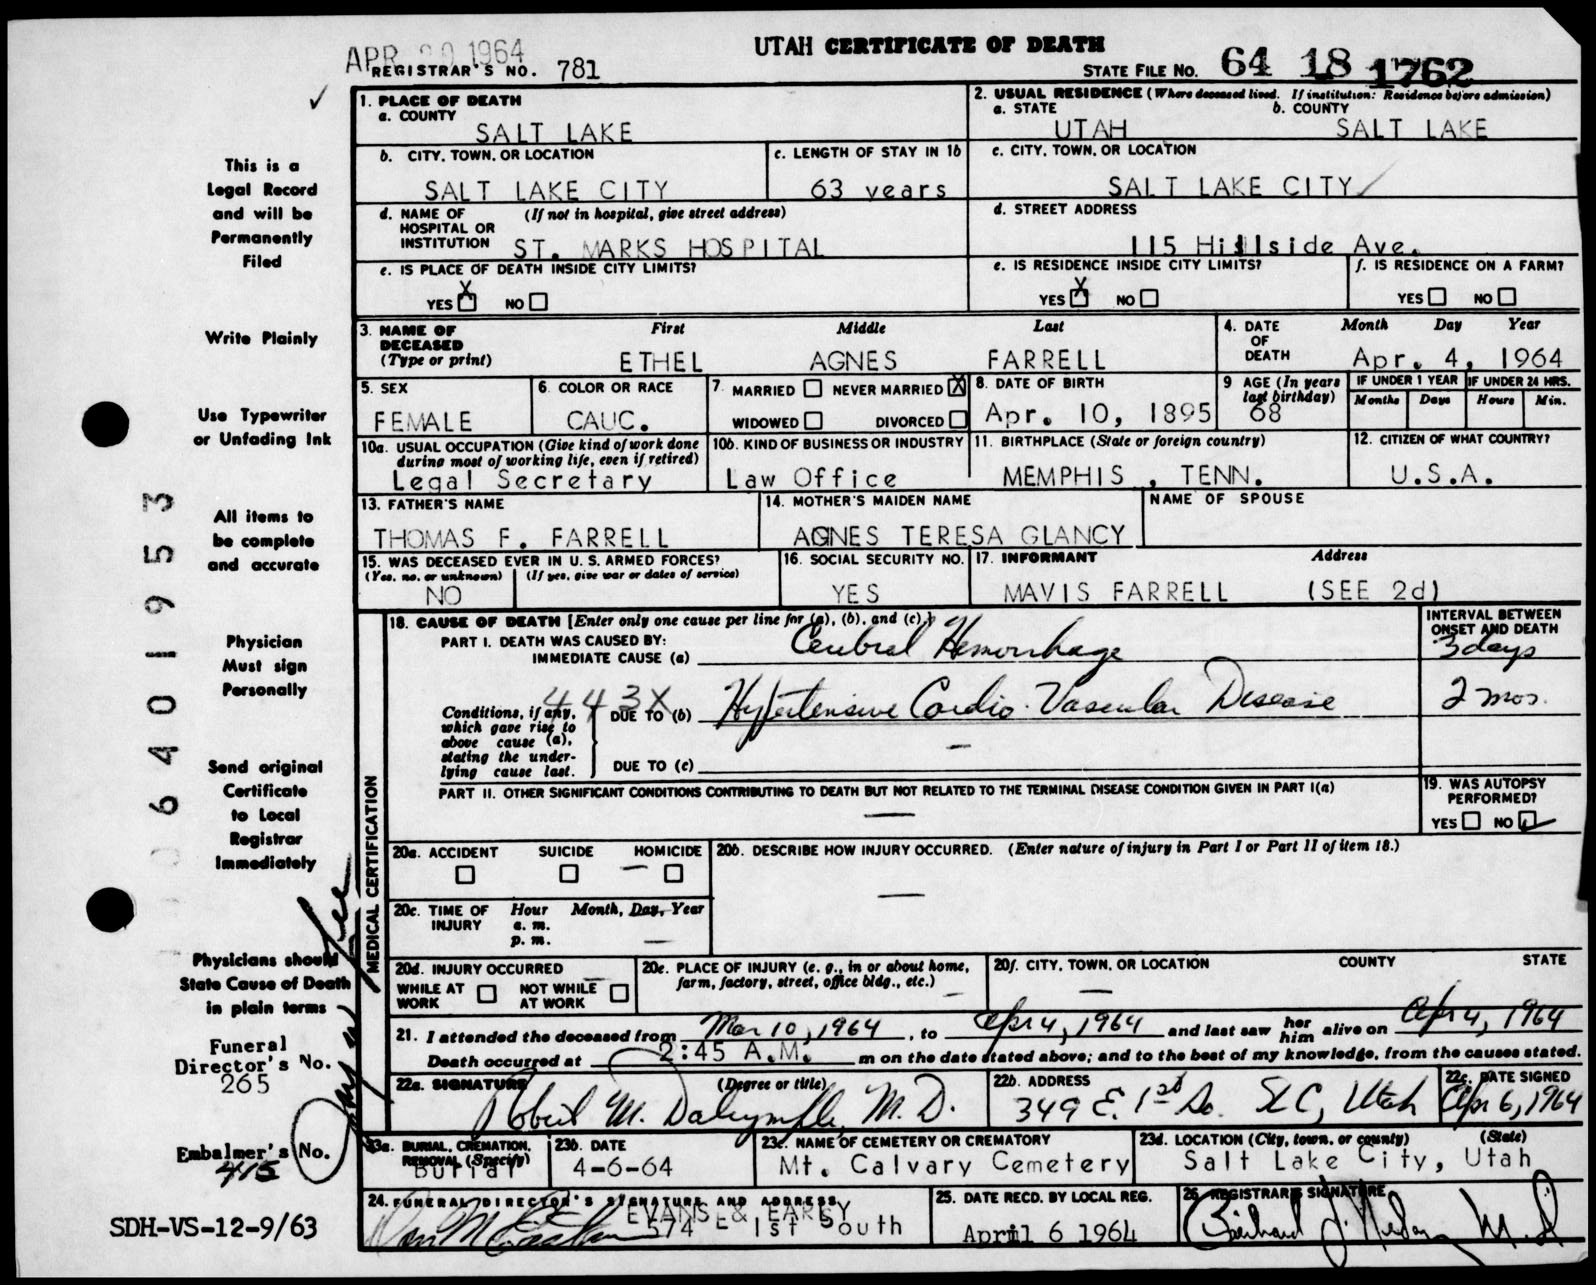 APR 20 1964
UTAH CERTIFICATE OF DEATH
REGISTRAR'S NO. 781
STATE FILE NO. 64 18 1762
1. PLACE OF DEATH
a. COUNTY
SALT LAKE
2. USUAL RESIDENCE (Where deceased lived. If institution: Residence before admission)
a. STATE b. COUNTY
UTAH SALT LAKE
b. CITY, TOWN, OR LOCATION
SALT LAKE CITY
c. LENGTH OF STAY IN 1b
63 years
c. CITY, TOWN, OR LOCATION
SALT LAKE CITY
d. NAME OF HOSPITAL OR INSTITUTION (If not in hospital, give street address)
ST. MARKS HOSPITAL
d. STREET ADDRESS
115 Hillside Ave.
e. IS PLACE OF DEATH INSIDE CITY LIMITS?
YES X NO
e. IS RESIDENCE INSIDE CITY LIMITS?
YES X NO
f. IS RESIDENCE ON A FARM?
YES NO
3. NAME OF DECEASED (Type or print)
First Middle Last
ETHEL AGNES FARRELL
4. DATE OF DEATH
Month Day Year
Apr. 4, 1964
5. SEX
FEMALE
6. COLOR OR RACE
CAUC.
7. MARRIED NEVER MARRIED X
WIDOWED DIVORCED
8. DATE OF BIRTH
Apr. 10, 1895
9 AGE (In years last birthday)
68
IF UNDER 1 YEAR IF UNDER 24 HRS.
Months Days Hours Min.
10a. USUAL OCCUPATION (Give kind of work done during most of working life, even if retired)
Legal Secretary
10b. KIND OF BUSINESS OR INDUSTRY
Law Office
11. BIRTHPLACE (State or foreign country)
MEMPHIS, TENN.
12. CITIZEN OF WHAT COUNTRY?
U.S.A.
13. FATHER'S NAME
THOMAS F. FARRELL
14. MOTHER'S MAIDEN NAME
AGNES TERESA GLANCY
NAME OF SPOUSE
15. WAS DECEASED EVER IN U. S. ARMED FORCES?
(Yes, no, or unknown) (If yes, give war or dates of service)
NO
16. SOCIAL SECURITY NO.
YES
17. INFORMANT Address
MAVIS FARRELL (SEE 2d)
MEDICAL CERTIFICATION
18. CAUSE OF DEATH [Enter only one cause per line for (a), (b), and (c).]
PART I. DEATH WAS CAUSED BY:
IMMEDIATE CAUSE (a) Cerebral Hemorrhage
INTERVAL BETWEEN ONSET AND DEATH
3 days
443X
Conditions, if any, which gave rise to above cause (a), stating the underlying cause last.
DUE TO (b) Hypertensive Cardio-Vascular Disease
2 mos.
DUE TO (c) —
PART II. OTHER SIGNIFICANT CONDITIONS CONTRIBUTING TO DEATH BUT NOT RELATED TO THE TERMINAL DISEASE CONDITION GIVEN IN PART I(a)
—
19. WAS AUTOPSY PERFORMED?
YES NO ✓
20a. ACCIDENT SUICIDE HOMICIDE
—
20b. DESCRIBE HOW INJURY OCCURRED. (Enter nature of injury in Part I or Part II of item 18.)
—
20c. TIME OF INJURY
Hour Month, Day, Year
a. m.
p. m.
—
20d. INJURY OCCURRED
WHILE AT WORK NOT WHILE AT WORK
—
20e. PLACE OF INJURY (e. g., in or about home, farm, factory, street, office bldg., etc.)
—
20f. CITY, TOWN, OR LOCATION COUNTY STATE
—
21. I attended the deceased from Mar 10, 1964, to Apr 4, 1964 and last saw her him alive on Apr 4, 1964
Death occurred at 2:45 A.M. m on the date stated above; and to the best of my knowledge, from the causes stated.
22a. SIGNATURE (Degree or title)
Robert M. Dalrymple, M.D.
22b. ADDRESS
349 E. 1st So. SLC, Utah
22c. DATE SIGNED
Apr 6, 1964
23a. BURIAL, CREMATION, REMOVAL (Specify)
Burial
23b. DATE
4-6-64
23c. NAME OF CEMETERY OR CREMATORY
Mt. Calvary Cemetery
23d. LOCATION (City, town, or county) (State)
Salt Lake City, Utah
24. FUNERAL DIRECTOR'S SIGNATURE AND ADDRESS
EVANS & EARLY
574 E 1st South
25. DATE RECD. BY LOCAL REG.
April 6 1964
26. REGISTRAR'S SIGNATURE
M.D.
This is a
Legal Record
and will be
Permanently
Filed
Write Plainly
Use Typewriter
or Unfading Ink
All items to
be complete
and accurate
Physician
Must sign
Personally
Send original
Certificate
to Local
Registrar
Immediately
Physicians should
State Cause of Death
in plain terms
Funeral
Director's No.
265
Embalmer's No.
415
SDH-VS-12-9/63
06401953